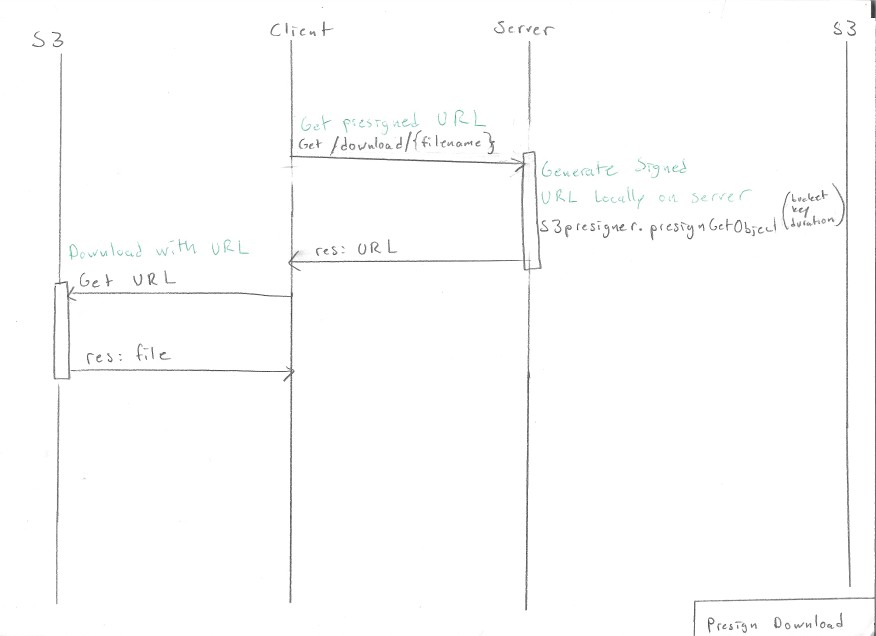 S3
Client
Server
S3
Get presigned URL
Get /download/{filename}
Generate Signed
URL Locally on server
S3presigner.presignGetObject (bucket
key
duration)
res: URL
Download with URL
Get URL
res: file
Presign Download